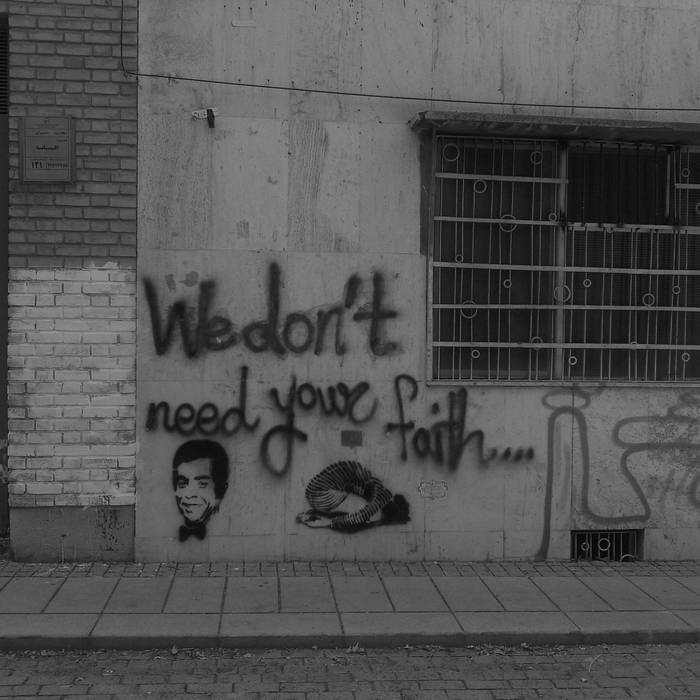 We don't
need your
faith....
۱۳۱